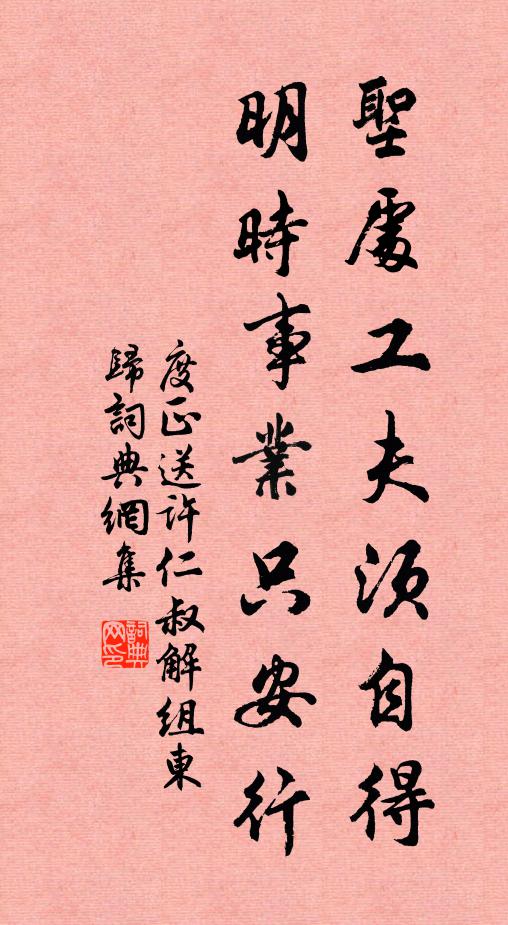 聖處工夫須自得
明時事業只安行
度正送許仁叔解組東
歸詞典網集
詞典
网印